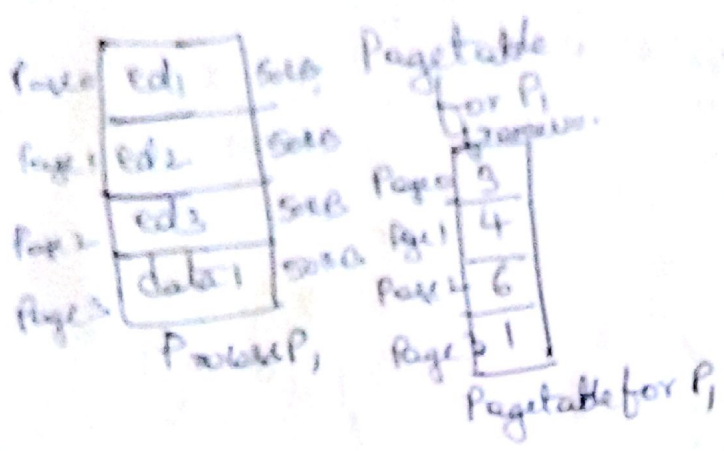 Page 0 ed1 50KB
Page 1 ed2 50KB
Page 2 ed3 50KB
Page 3 data1 50KB
Process P1
Pagetable
for P1
frame no.
Page 0 3
Page 1 4
Page 2 6
Page 3 1
Pagetable for P1